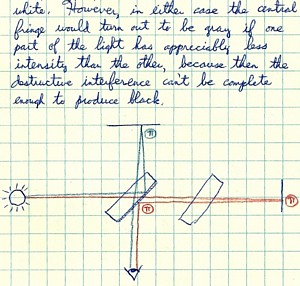 white. However, in either case the central
fringe would turn out to be gray if one
part of the light has appreciably less
intensity than the other, because then the
destructive interference can't be complete
enough to produce black.
π
π
π